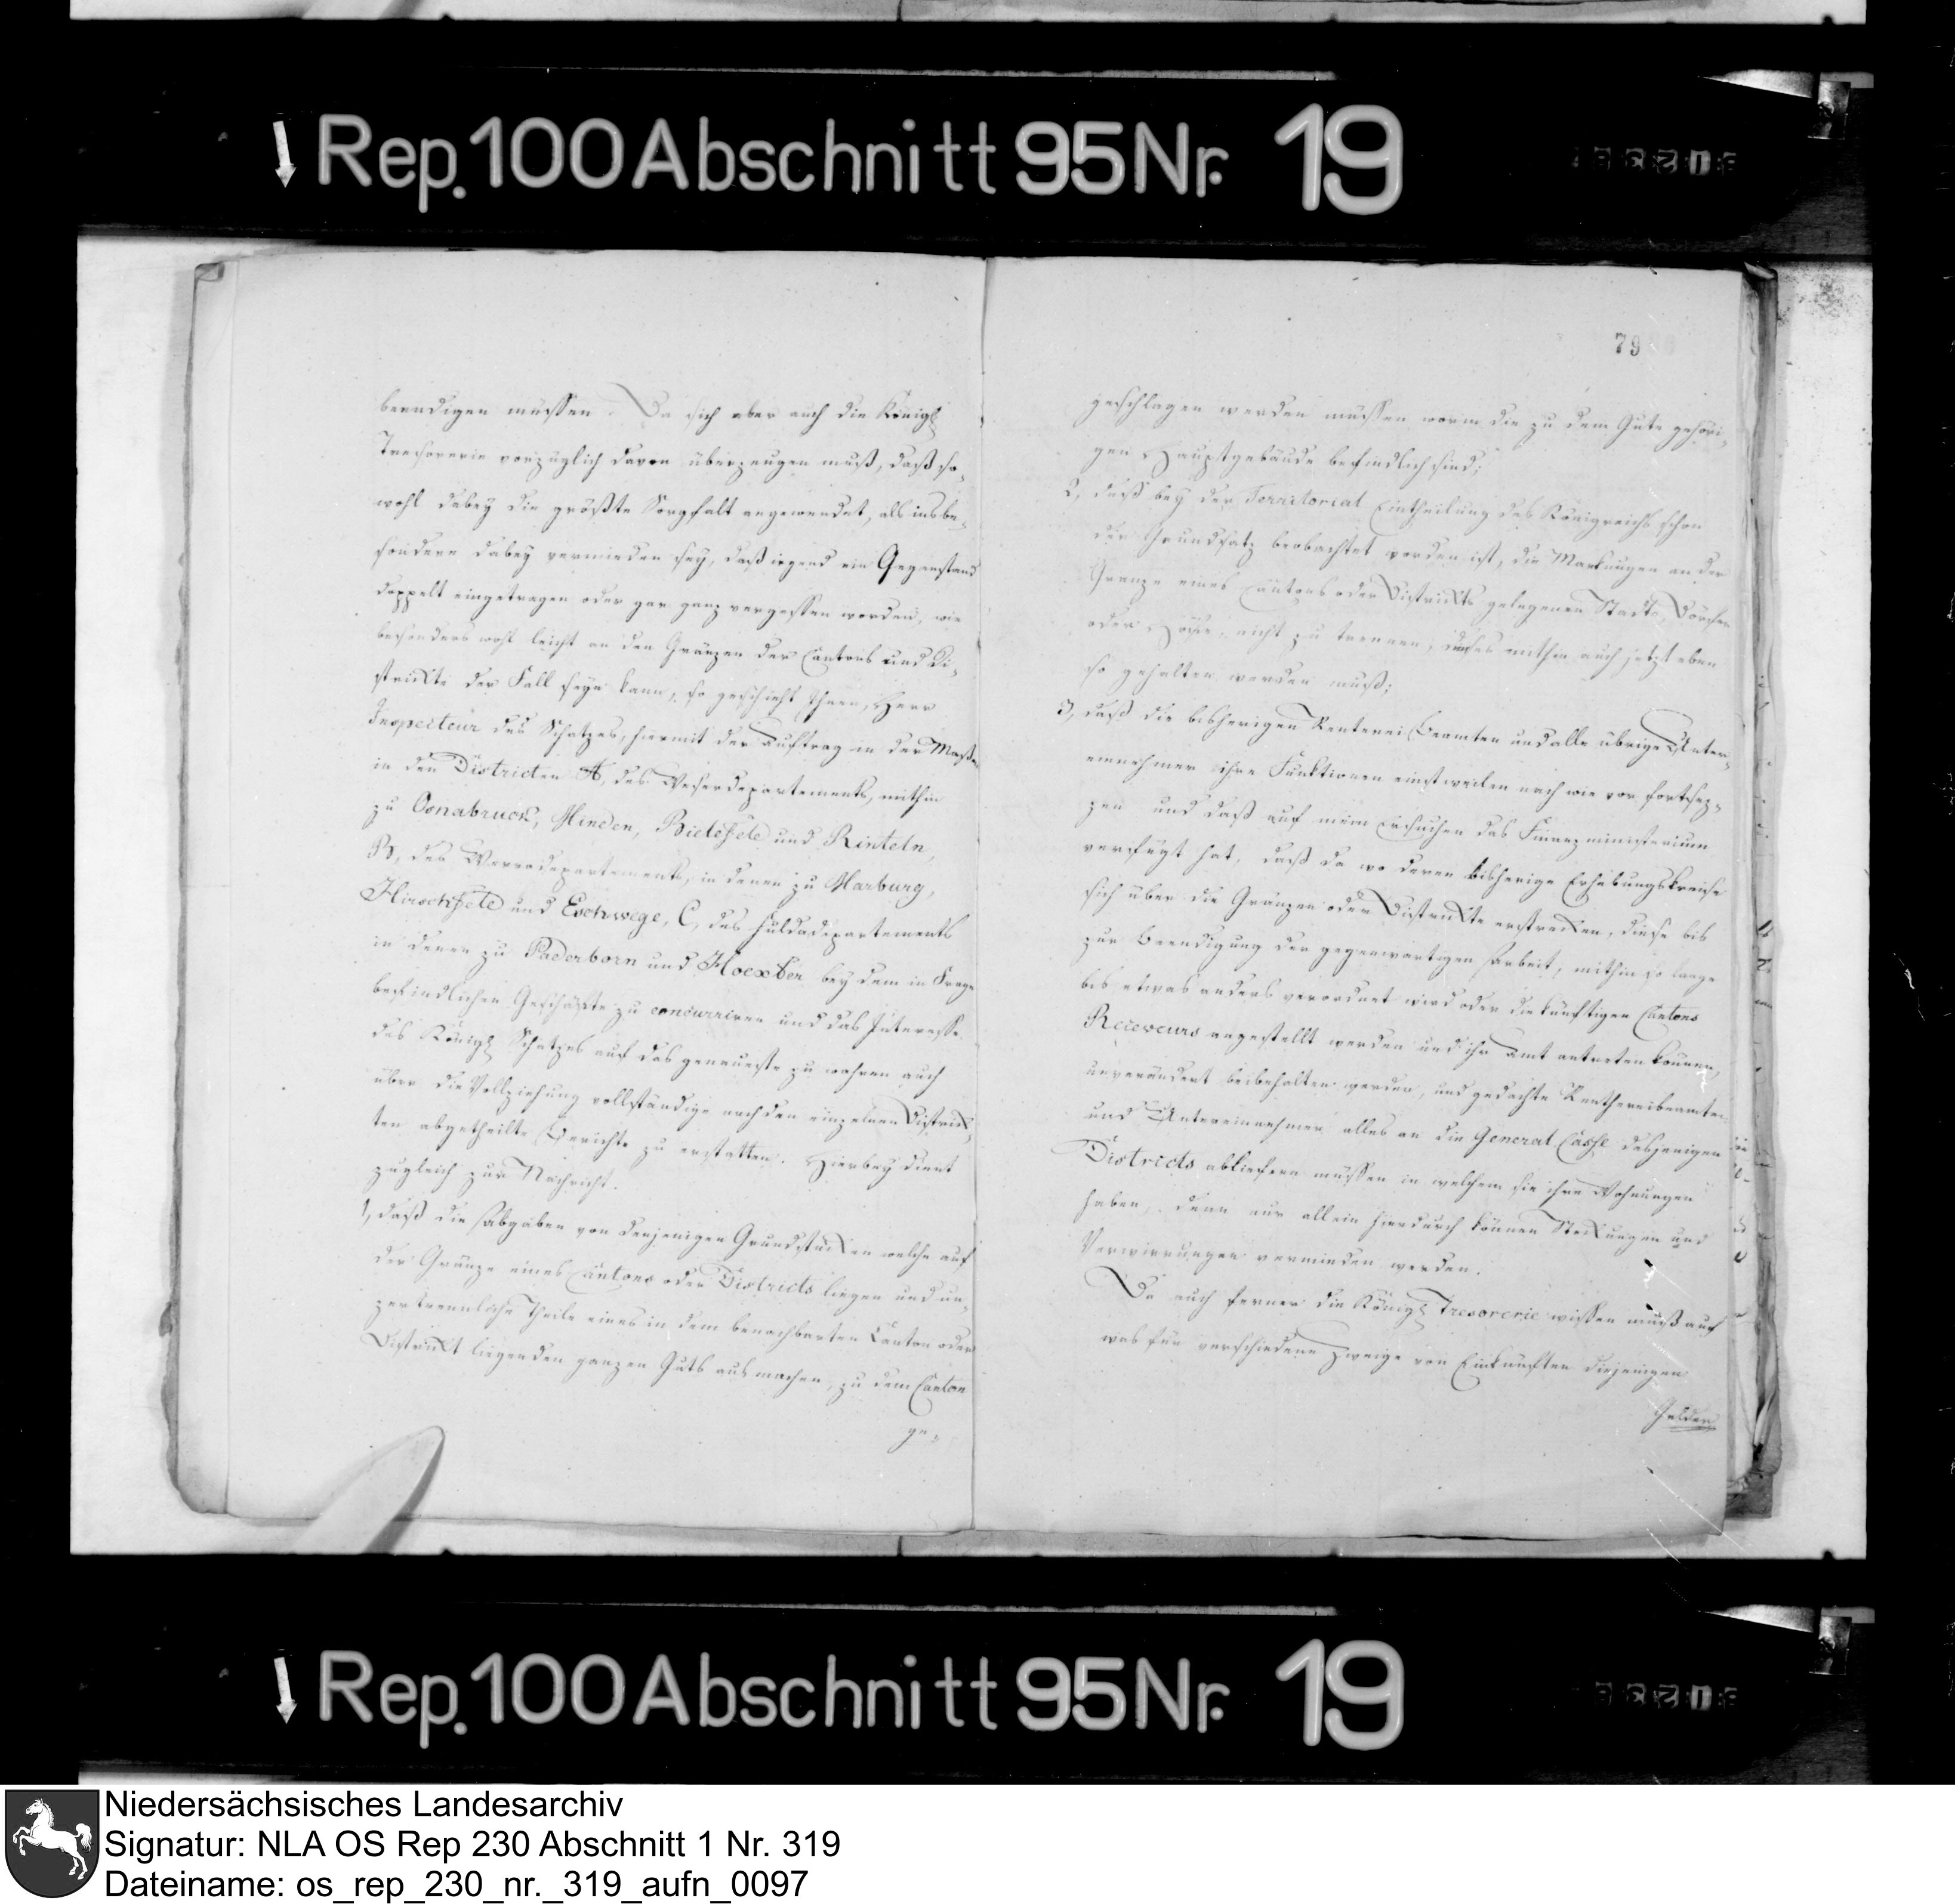 Rep. 100 Abschnitt 95 Nr. 19
beendigen müssen. Da sich aber auch die Königl
Tresorerie vorzüglich davon überzeugen muß, daß so-
wohl dabey die größte Sorgfalt angewendet, als insbe-
sondere dabey vermieden sey, daß irgend ein Gegenstand
doppelt eingetragen oder gar ganz vergessen worden, wie
besonders wohl leicht an den Gränzen der Cantons und Di-
strickte der Fall seyn kann, so geschieht Ihnen, Herr
Inspecteur des Schatzes, hiermit der Auftrag in der Maße
in den Districten A, des Weserdepartements, mithin
zu Osnabruck, Minden, Bielefeld und Rinteln,
B, des Werradepartements, in denen zu Marburg,
Hirschfeld und Eschwege, C, des Fuldadepartements
in denen zu Paderborn und Hoexter bey dem in Frage
befindlichen Geschäfte zu concurriren und das Interesse
des Königl Schatzes auf das genaueste zu wahren auch
über die Vollziehung vollständige nach den einzelnen District-
ten abgetheilte Berichte zu erstatten. Hierbey dient
zugleich zur Nachricht.
1, daß die Abgaben von denjenigen Grundstücken welche auf
der Gränze eines Cantons oder Districts liegen und un-
zertrennliche Theile eines in dem benachbarten Canton oder
Districkt liegenden ganzen Guts ausmachen, zu dem Canton
ge-
79
geschlagen werden müssen worin die zu dem Gute gehöri-
gen Hauptgebäude befindlich sind;
2, daß bey der Territorial Eintheilung des Königreichs schon
der Grundsatz beobachtet worden ist, die Markungen an der
Granze eines Cantons oder Districkts gelegenen Stadte, Dörfer
oder Höfe, nicht zu trennen, dieses mithin auch jetzt eben
so gehalten werden muß;
3, daß die bisherigen Rentenei Beamten und alle übrige Unter-
einnehmer ihre Funktionen einstweilen nach wie vor fortsez-
zen und daß auf mein Ersuchen das Finanzministerium
verfügt hat, daß da wo deren bisherige Erhebungskreise
sich über die Gränzen oder Districkte erstrecken, diese bis
zur Beendigung der gegenwartigen Arbeit, mithin so lange
bis etwas anders verordnet wird oder die künftigen Cantons
Receveurs angestellt werden und ihr Amt antreten können,
unverändert beibehalten werden, und gedachte Renthereibeamten
und Untereinnehmer alles an die General Casse desjenigen
Districts abliefern müssen in welchem sie ihre Wohnungen
haben, denn nur allein hierdurch können Stockungen und
Verwirrungen vermieden werden.
Da auch ferner die Königl Tresorerie wissen muß auf
was für verschiedene Zweige von Einkünften diejenigen
Gelder
Rep. 100 Abschnitt 95 Nr. 19
Niedersächsisches Landesarchiv
Signatur: NLA OS Rep 230 Abschnitt 1 Nr. 319
Dateiname: os_rep_230_nr._319_aufn_0097